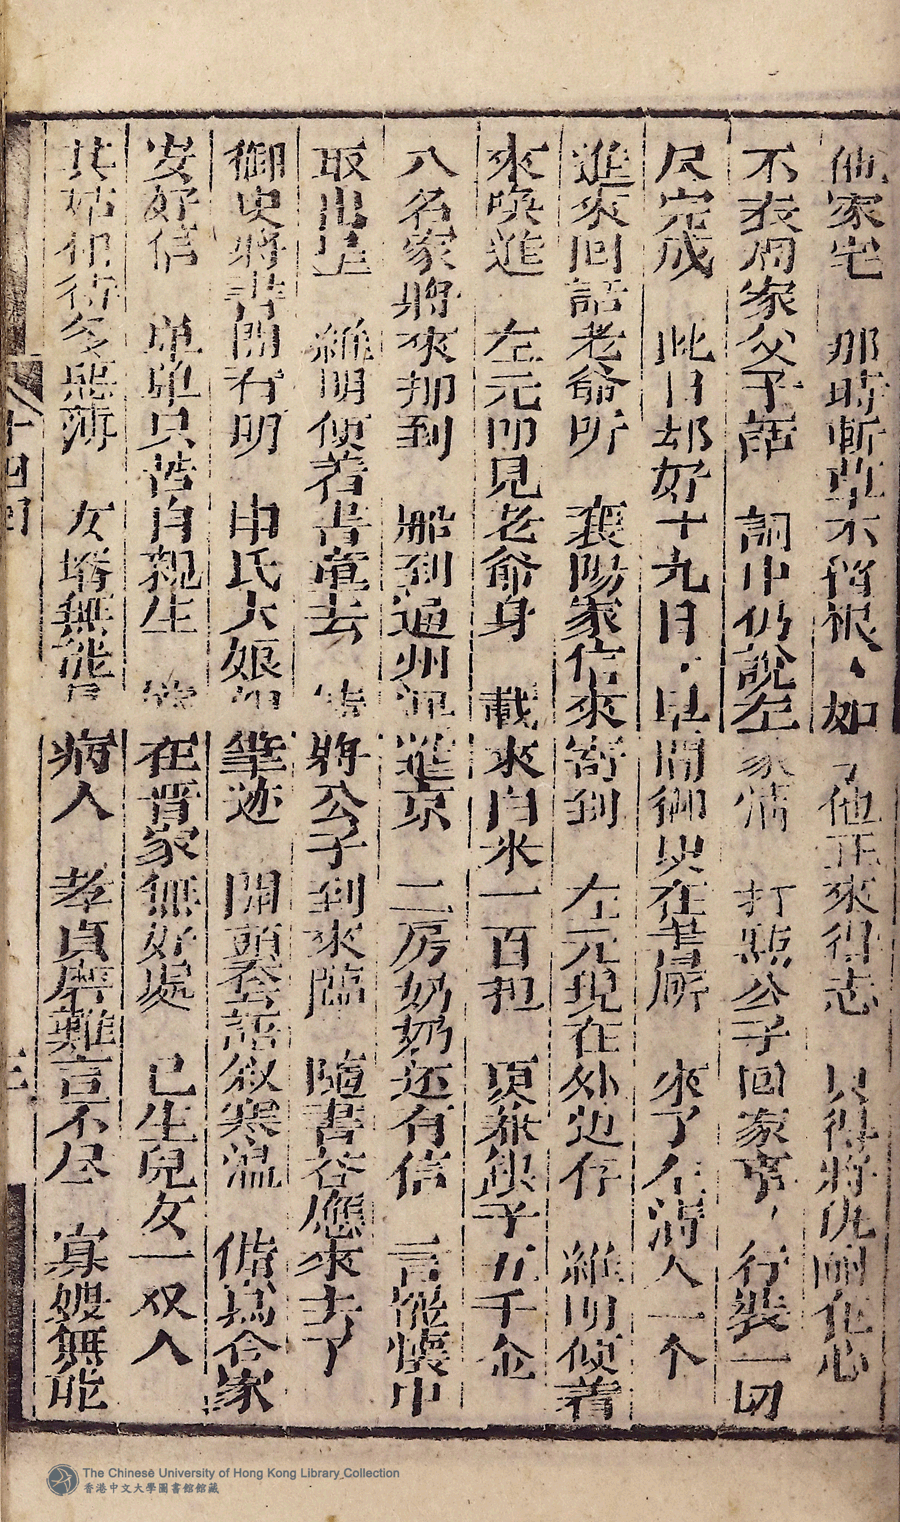 他家宅　那時斬草不留根、如了他正來得志　只得將仇耐在心
不表周家父子話　詞中仍說左家情　打點公子回家享，行裝一切
尽完成　此日却好十九日，早間御史在書房　來了左清人一个
進來回話老爺听　襄陽家信來寄到　左元現在外边存　維明便着
來喚進　左元叩見老爺身　載來白米一百担　更兼銀子五千金
八名家將來押到　船到通州進京　二房奶奶还有信　言罷懷中
取出呈　維明便着書童去　將公子到來臨　隨書答應來去了
御史將書開看明　申氏大娘　筆迹　開頭套語叙寒温　俻寫合家
安好信　單單只苦自親生　在晋家無好處　已生兒女一双人
其姑相待多惡薄　女壻無能　病人　孝貞磨難言不尽　寡嫂無能
十四回
三
The Chinese University of Hong Kong Library_Collection
香港中文大學圖書館館藏